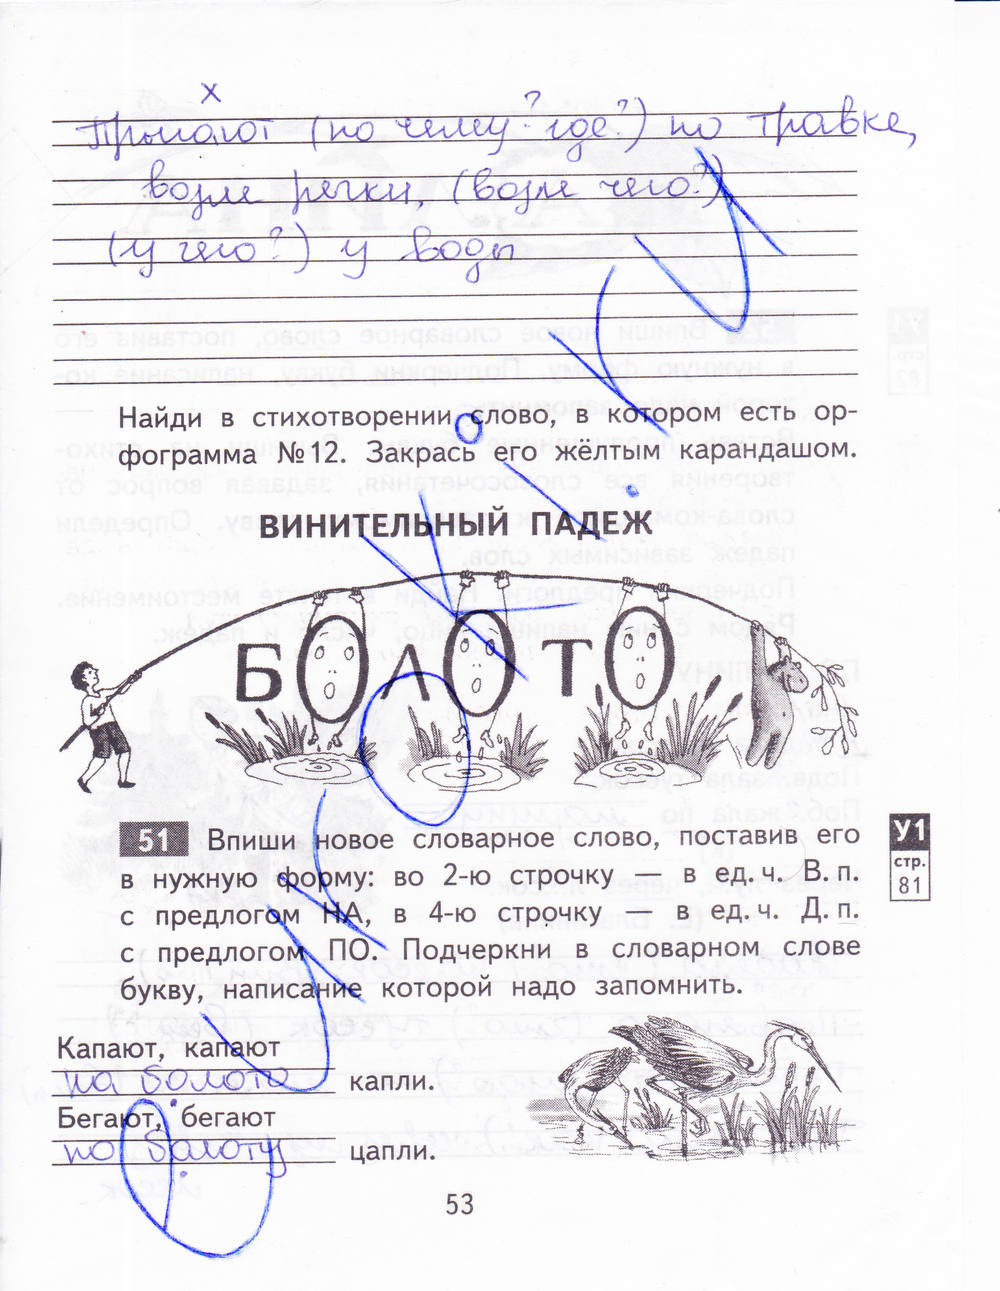 х
Прыгают (по чему? где?) по травке,
возле речки, (возле чего?)
(у чего?) у воды
Найди в стихотворении слово, в котором есть ор-
фограмма № 12. Закрась его жёлтым карандашом.
ВИНИТЕЛЬНЫЙ ПАДЕЖ
БОЛОТО
51 Впиши новое словарное слово, поставив его
в нужную форму: во 2-ю строчку — в ед. ч. В. п.
с предлогом НА, в 4-ю строчку в ед. ч. Д. п.
с предлогом ПО. Подчеркни в словарном слове
букву, написание которой надо запомнить.
У1
стр.
81
Капают, капают
на болото капли.
Бегают, бегают
по болоту цапли.
53